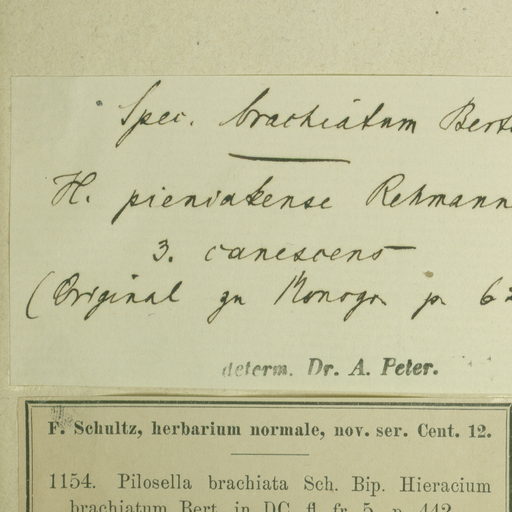 Spec. brachiatum Bert
H. pieniakense Rehmann
3. canescens
(Original zu Monogr. p. 6
determ. Dr. A. Peter.
F. Schultz, herbarium normale, nov. ser. Cent. 12.
1154. Pilosella brachiata Sch. Bip. Hieracium
brachiatum Bert. in DC. fl. fr. 5. p. 442.